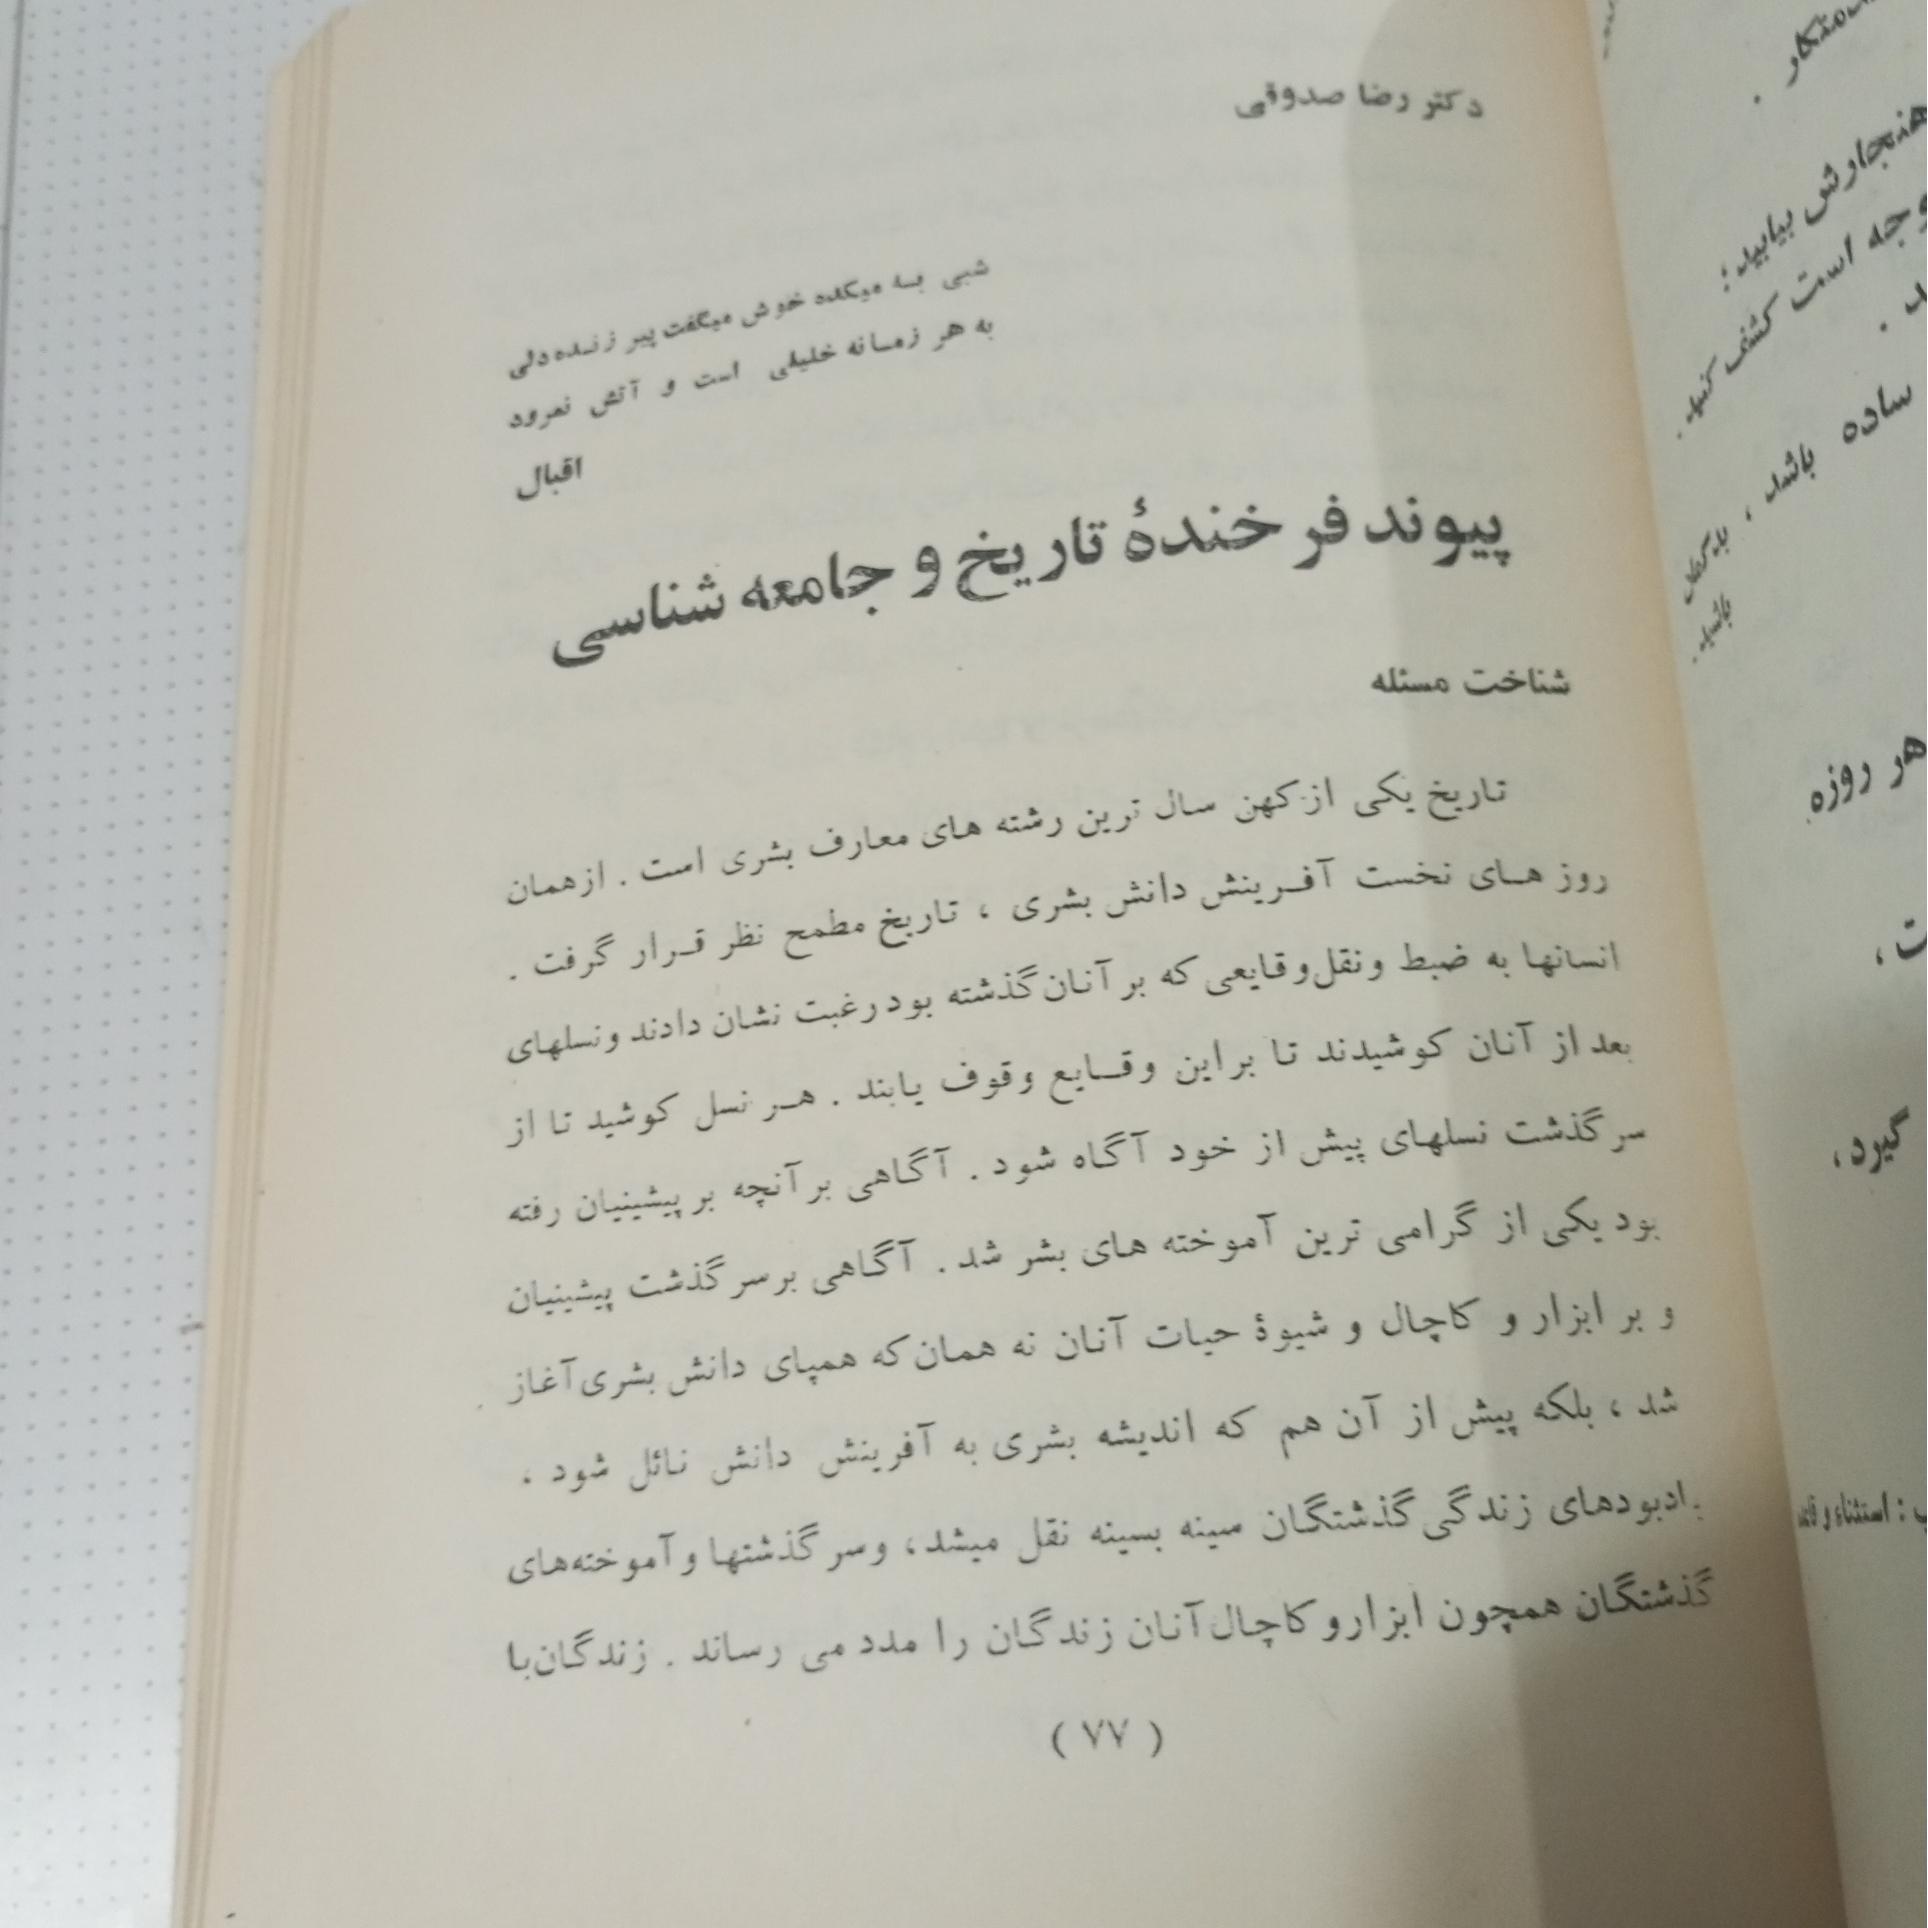 دکتر رضا صدوقی
شبی به میکده خوش میگفت پیر زنده‌دلی
به هر زمانه خلیلی است و آتش نمرود
اقبال
پیوند فرخندهٔ تاریخ و جامعه شناسی
شناخت مسئله
تاریخ یکی از کهن سال ترین رشته های معارف بشری است . از همان
روز های نخست آفرینش دانش بشری ، تاریخ مطمح نظر قرار گرفت .
انسانها به ضبط و نقل وقایعی که بر آنان گذشته بود رغبت نشان دادند و نسلهای
بعد از آنان کوشیدند تا براین وقایع وقوف یابند . هر نسل کوشید تا از
سرگذشت نسلهای پیش از خود آگاه شود . آگاهی بر آنچه بر پیشینیان رفته
بود یکی از گرامی ترین آموخته های بشر شد . آگاهی بر سرگذشت پیشینیان
و بر ابزار و کاچال و شیوهٔ حیات آنان نه همان که همپای دانش بشری آغاز
شد ، بلکه پیش از آن هم که اندیشه بشری به آفرینش دانش نائل شود ،
یادبودهای زندگی گذشتگان سینه بسینه نقل میشد، و سرگذشتها و آموخته‌های
گذشتگان همچون ابزار و کاچال آنان زندگان را مدد می رساند . زندگان با
( ۷۷ )
هنجارش بیابید؛
وجه است کشف کنید.
ساده باشد ،
باشید.
هر روزه
گیرد،
: استثناء و